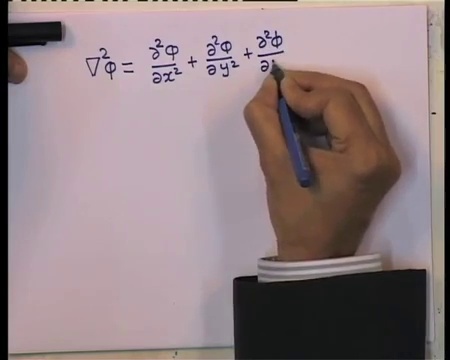 ∇²φ = ∂²φ/∂x² + ∂²φ/∂y² + ∂²φ/∂